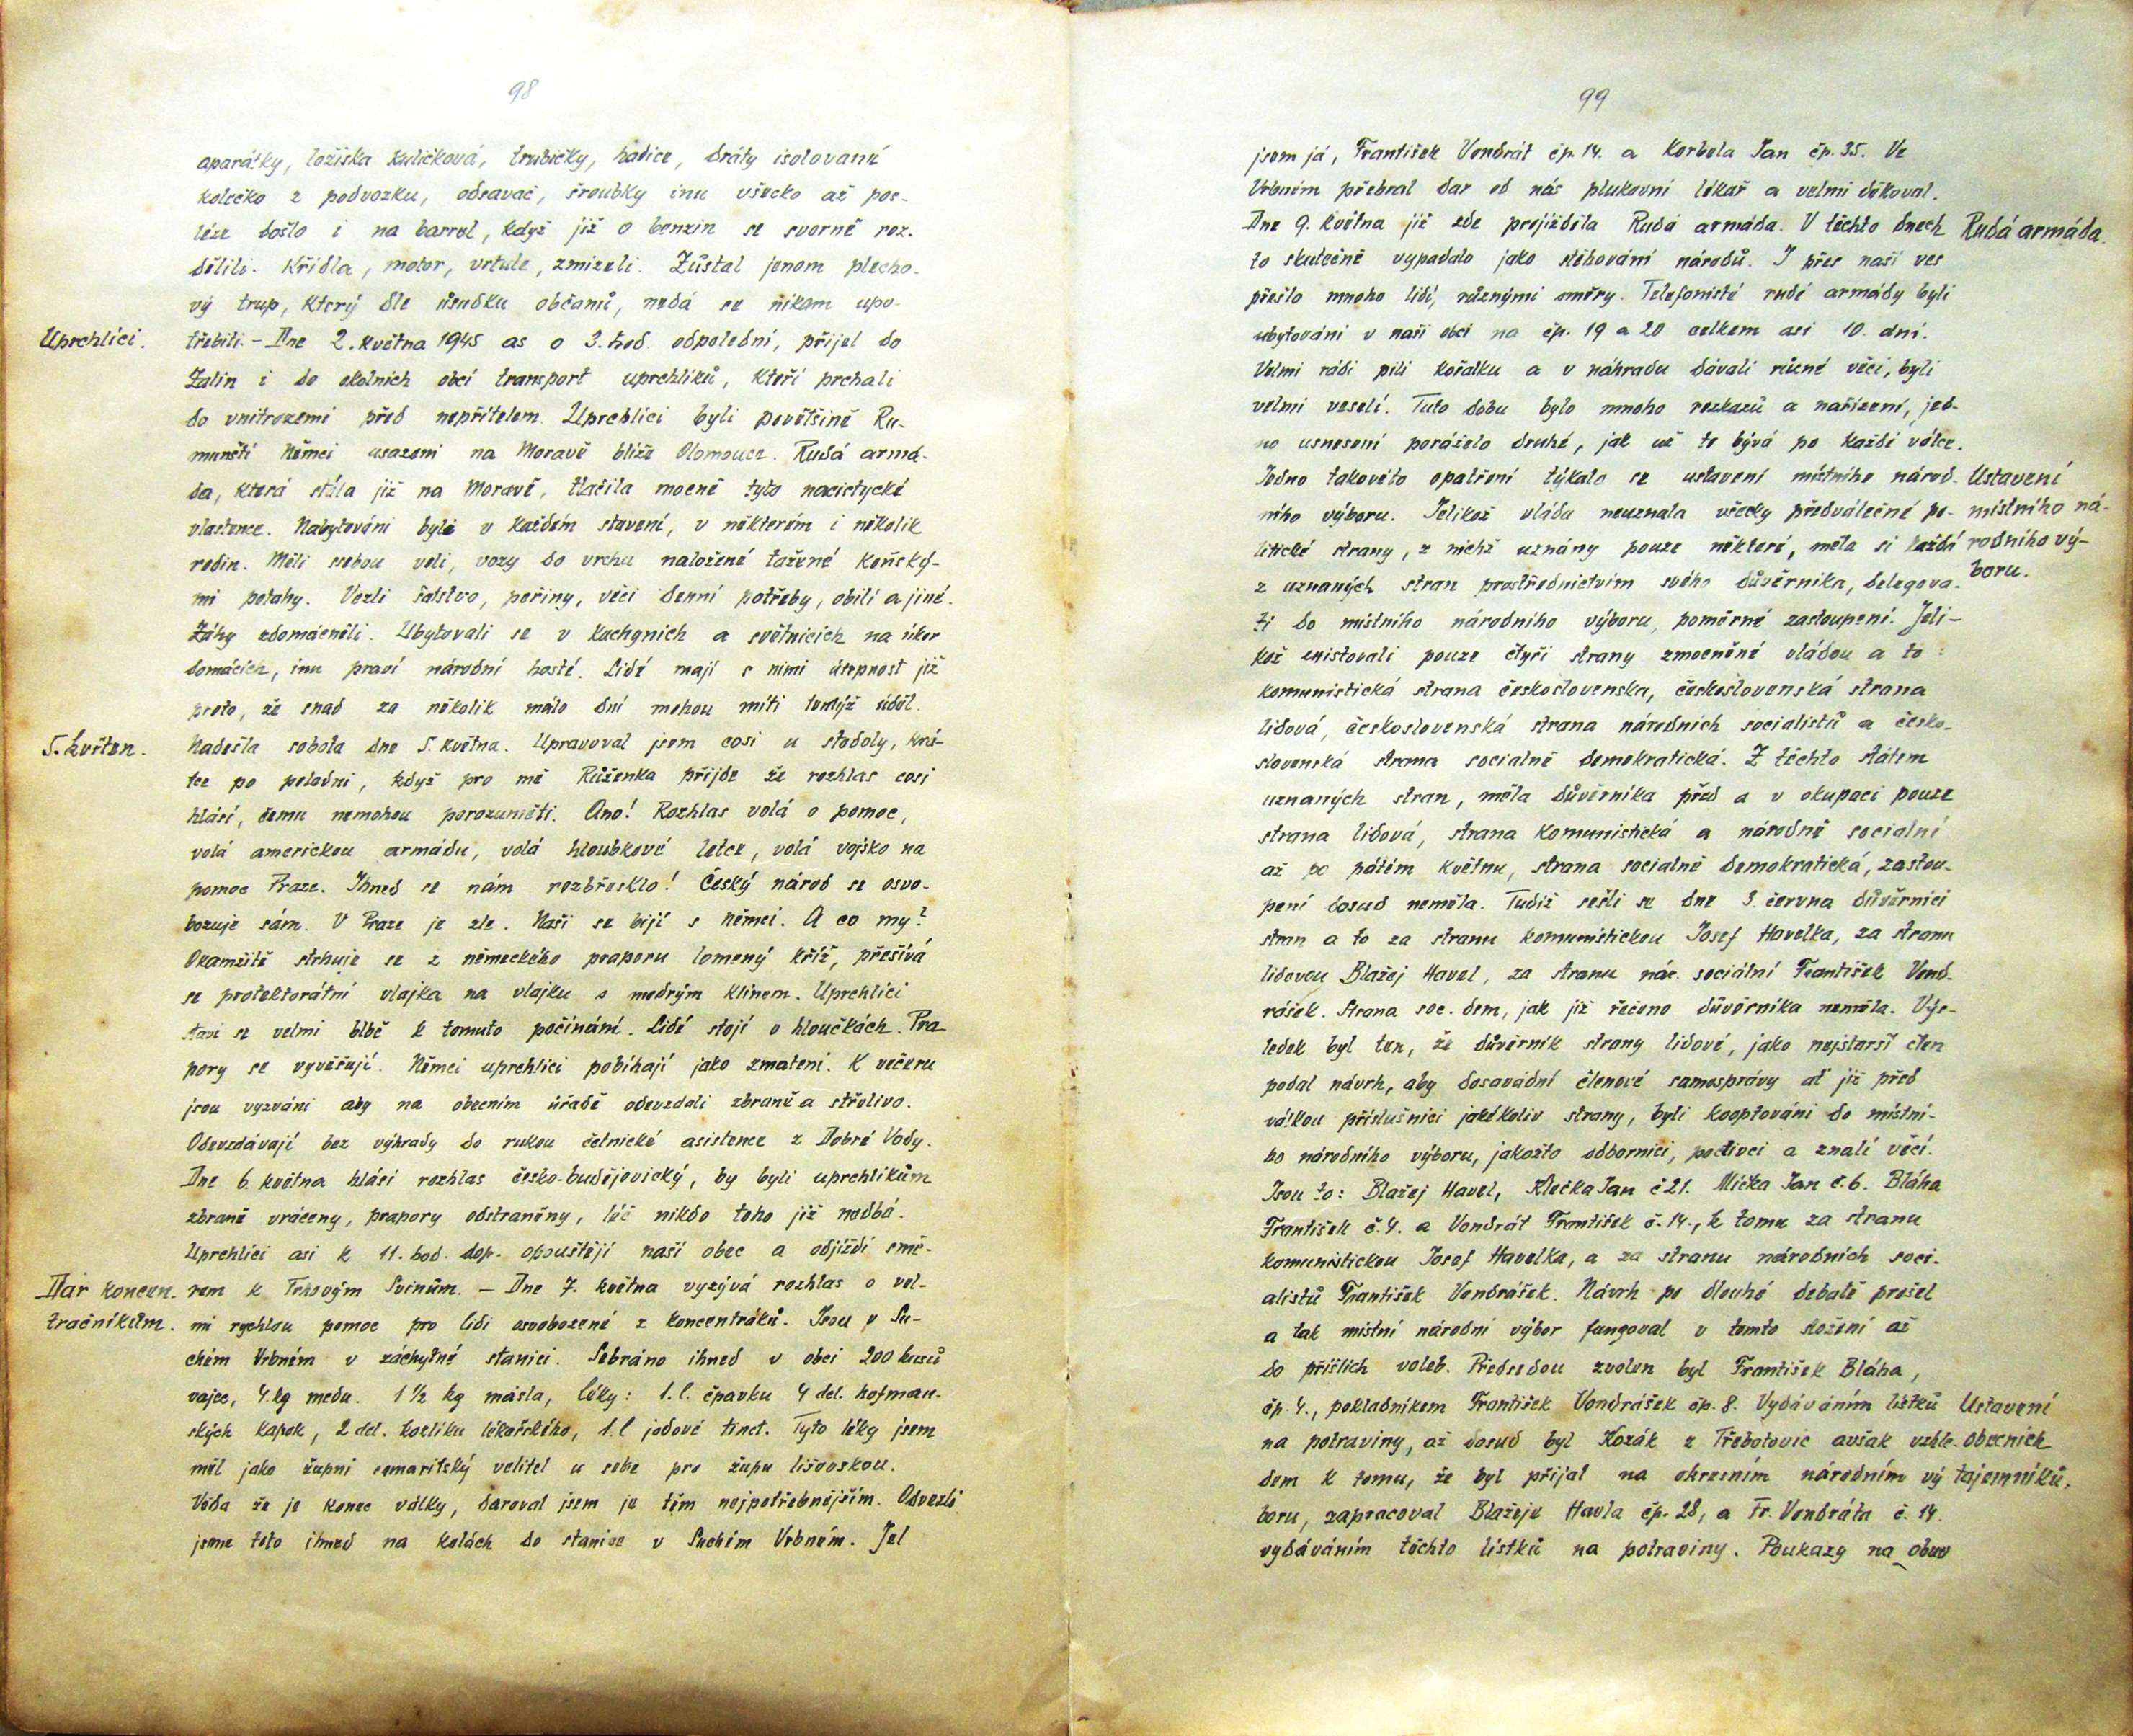 98
aparátky, ložiska kuličková, trubičky, hadice, dráty isolované
kolečko z podvozku, odsavač, šroubky inu všecko až pos-
léze došlo i na barrel, když již o benzin se svorně roz-
dělili. Křídla, motor, vrtule, zmizeli. Zůstal jenom plecho-
vý trup, který dle úsudku občanů, nedá se nikam upo-
Uprchlíci.
třebiti. - Dne 2. května 1945 as o 3. hod. odpolední, přijel do
Zalin i do okolních obcí transport uprchlíků, kteří prchali
do vnitrozemí před nepřítelem. Uprchlíci byli povětšině Ru-
munští Němci usazeni na Moravě blíže Olomouce. Rudá armá-
da, která stála již na Moravě, tlačila mocně tyto nacistycké
vlastence. Nabytováni byli v každém stavení, v některém i několik
rodin. Měli sebou voli, vozy do vrchu naložené tažené koňský-
mi potahy. Vezli šatstvo, peřiny, věci denní potřeby, obilí a jiné.
Záhy zdomácněli. Ubytovali se v kuchyních a světnicích na úkor
domácích, inu praví národní hosté. Lidé mají s nimi útrpnost již
proto, že snad za několik málo dní mohou míti tentýž úděl.
5. květen.
Nadešla sobota dne 5. května. Upravoval jsem cosi u stodoly, krá-
tce po poledni, když pro mě Růženka přijde že rozhlas cosi
hlásí, čemu nemohou porozuměti. Ano! Rozhlas volá o pomoc,
volá americkou armádu, volá hloubkové letce, volá vojsko na
pomoc Praze. Ihned se nám rozbřesklo! Český národ se osvo-
bozuje sám. V Praze je zle. Naši se bijí s Němci. A co my?
Okamžitě strhuje se z německého praporu lomený kříž, přešívá
se protektorátní vlajka na vlajku s modrým klínem. Uprchlíci
staví se velmi blbě k tomuto počínání. Lidé stojí v hloučkách. Pra
pory se vyvěšují. Němci uprchlíci pobíhají jako zmatení. K večeru
jsou vyzváni aby na obecním úřadě odevzdali zbraně a střelivo.
Odevzdávají bez výhrady do rukou četnické asistence z Dobré Vody.
Dne 6. května hlásí rozhlas česko-budějovický, by byli uprchlíkům
zbraně vráceny, prapory odstraněny, léč nikdo toho již nedbá.
Uprchlíci asi k 11. hod. dop. opouštějí naší obec a odjíždí smě-
Dar koncen-
rem k Trhovým Svinům. - Dne 7. května vyzývá rozhlas o vel-
tračníkům.
mi rychlou pomoc pro lidi osvobozené z koncentráků. Jsou v Su-
chém Vrbném v záchytné stanici. Sebráno ihned v obci 200 kusů
vajec, 4. kg medu. 1 ½ kg másla, léky: 1. l. čpavku 4 del. hofman-
ských kapek, 2 del. kozlíku lékařského, 1. l jodové tinct. Tyto léky jsem
měl jako župní samaritský velitel u sebe pro župu lišovskou.
Věda že je konec války, daroval jsem je těm nejpotřebnějším. Odvezli
jsme toto ihned na kolách do stanice v Suchém Vrbném. Jel
99
jsem já, František Vondrát čp. 14. a Korbela Jan čp. 35. Ve
Vrbném přebral dar od nás plukovní lékař a velmi děkoval.
Dne 9. května již zde projížděla Rudá armáda. V těchto dnech
Rudá armáda.
to skutečně vypadalo jako stěhování národů. I přes naší ves
přešlo mnoho lidí, různými směry. Telefonisté rudé armády byli
ubytováni v naší obci na čp. 19 a 20 celkem asi 10. dní.
Velmi rádi pili kořalku a v náhradu dávali různé věci, byli
velmi veselí. Tuto dobu bylo mnoho rozkazů a nařízení, jed-
no usnesení poráželo druhé, jak už to bývá po každé válce.
Jedno takovéto opatření týkalo se ustavení místního národ-
Ustavení
ního výboru. Jelikož vláda neuznala všecky předválečné po-
místního ná-
litické strany, z nichž uznány pouze některé, měla si každá
rodního vý-
z uznaných stran prostřednictvím svého důvěrníka, delegova-
boru.
ti do místního národního výboru, poměrné zastoupení. Jeli-
kož existovali pouze čtyři strany zmocněné vládou a to:
komunistická strana československa, československá strana
lidová, československá strana národních socialistů a česko-
slovenská strana socialně demokratická. Z těchto státem
uznaných stran, měla důvěrníka před a v okupaci pouze
strana lidová, strana komunistická a národně socialní
až po pátém květnu, strana socialně demokratická, zastou-
pení dosud neměla. Tudíž sešli se dne 3. června důvěrníci
stran a to za stranu komunistickou Josef Havelka, za stranu
lidovou Blažej Havel, za stranu nár. sociální František Vond-
rášek. Strana soc. dem, jak již řečeno důvěrníka neměla. Výs-
ledek byl ten, že důvěrník strany lidové, jako nejstarší člen
podal návrh, aby dosavadní členové samosprávy ať již před
válkou příslušníci jakékoliv strany, byli kooptováni do místní-
ho národního výboru, jakožto odborníci, poctivci a znalí věcí.
Jsou to: Blažej Havel, Klečka Jan č 21. Mička Jan č. 6. Bláha
František č. 4. a Vondrát František č. 14., k tomu za stranu
komunistickou Josef Havelka, a za stranu národních soci-
alistů František Vondrášek. Návrh po dlouhé debatě prošel
a tak místní národní výbor fungoval v tomto složení až
do příšlích voleb. Předsedou zvolen byl František Bláha,
čp. 4., pokladníkem František Vondrášek čp. 8. Vydáváním lístků
Ustavení
na potraviny, až dosud byl Kozák z Třebotovic avšak vzhle-
obecních
dem k tomu, že byl přijat na okresním národním vý
tajemníků.
boru, zapracoval Blažeje Havla čp. 28, a Fr. Vondráta č. 14.
vydáváním těchto lístků na potraviny. Poukazy na obuv